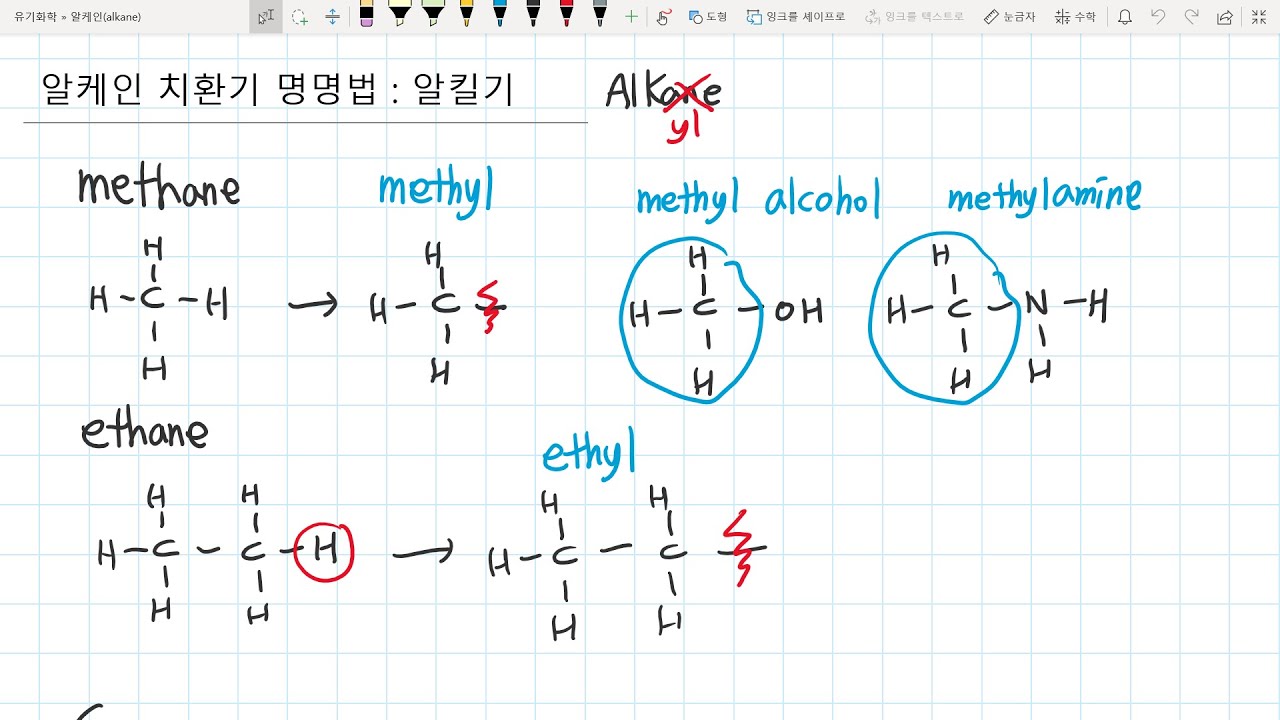 유기화학 » 알케인(alkane) 도형 잉크를 셰이프로 잉크를 텍스트로 눈금자 수학
알케인 치환기 명명법 : 알킬기 Alkane
yl
methane methyl methyl alcohol methylamine
H H H H
H - C - H → H - C - H - C - OH H - C - N - H
H H H H H
ethane ethyl
H H H H
H - C - C - H → H - C - C -
H H H H